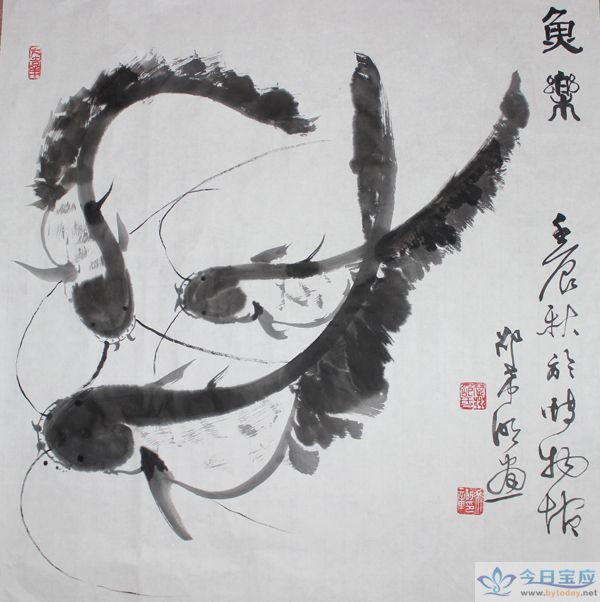 魚樂
壬辰秋於博物馆
邵画
今日宝应
www.bytoday.net